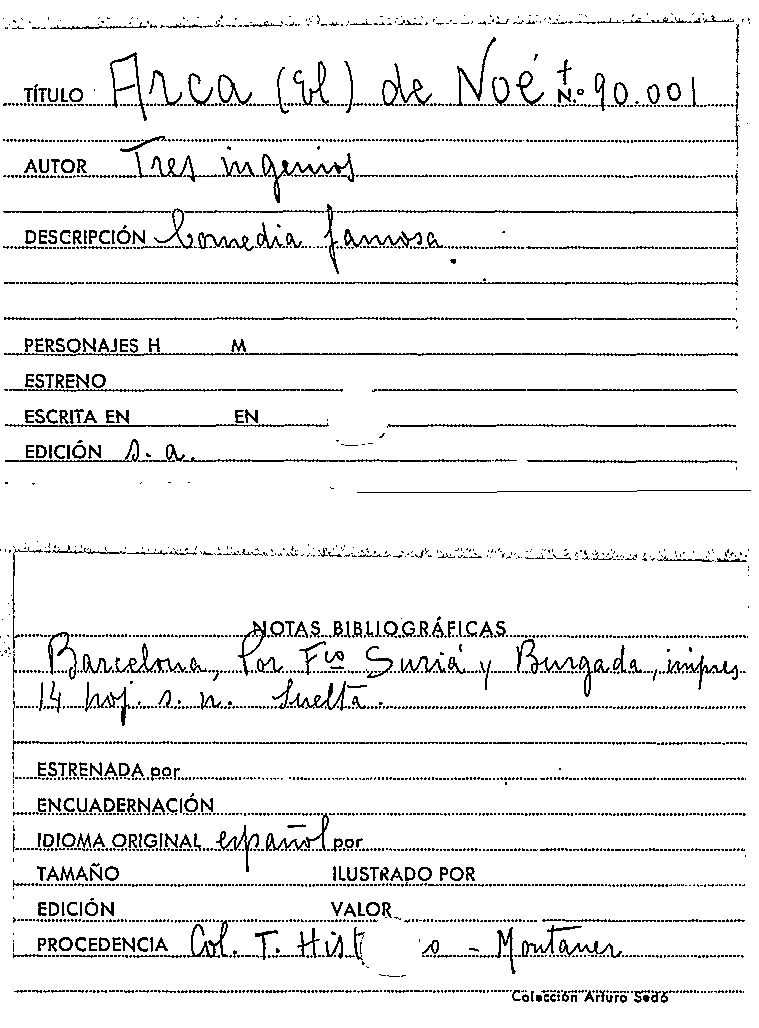 TÍTULO Arca (El) de Noé † N.º 90.001
AUTOR Tres ingenios
DESCRIPCIÓN Comedia famosa.
PERSONAJES H M
ESTRENO
ESCRITA EN EN
EDICIÓN s. a.
NOTAS BIBLIOGRÁFICAS
Barcelona, Por Fco Suriá y Burgada, impres
14 hoj. s. n. Suelta.
ESTRENADA por
ENCUADERNACIÓN
IDIOMA ORIGINAL español por
TAMAÑO ILUSTRADO POR
EDICIÓN VALOR
PROCEDENCIA Col. T. Hist o - Montaner
Colección Arturo Sedó